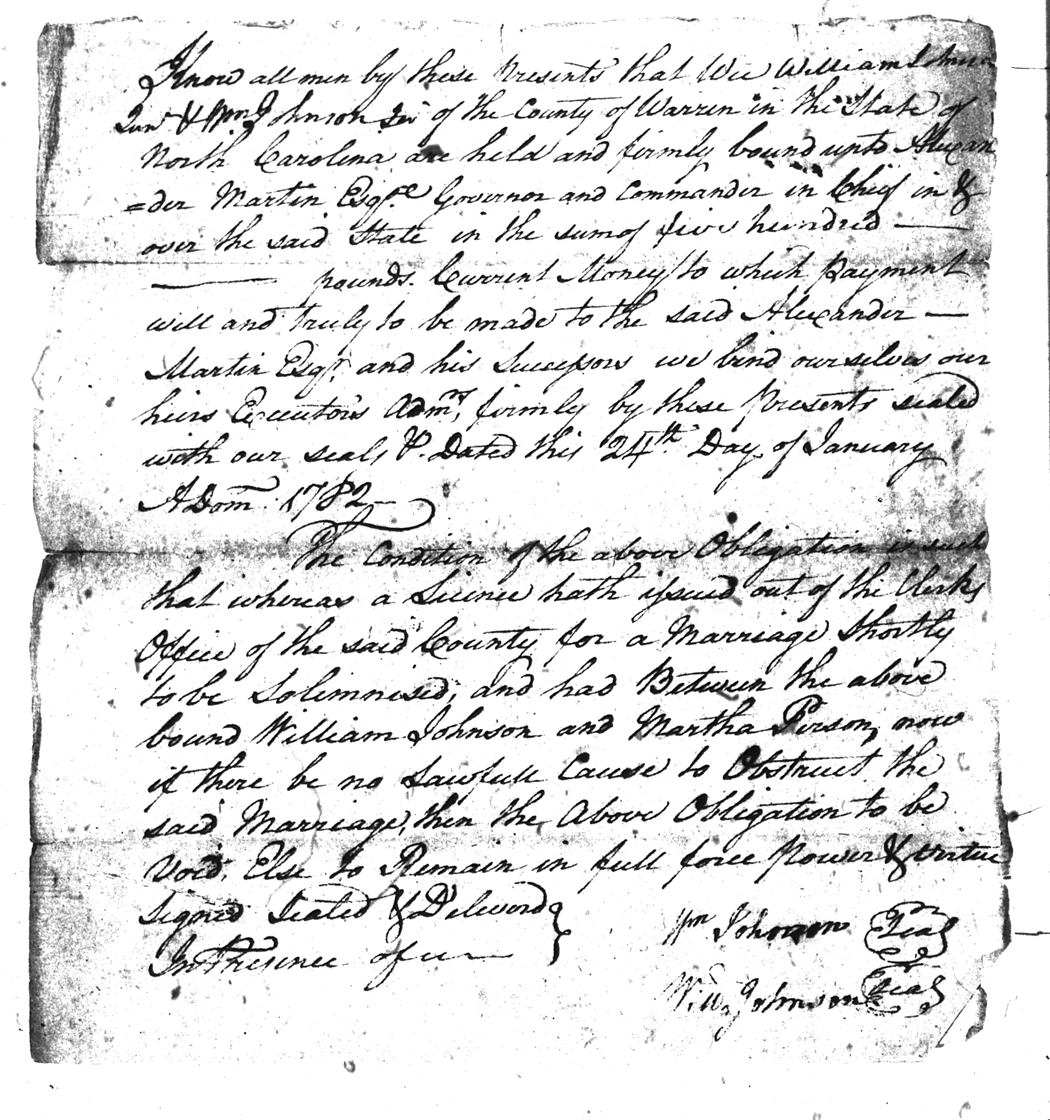 Know all men by these Presents that Wee William Johnson
Junr & Wm Johnson Sir of the County of Warren in the State of
North Carolina are held and firmly bound unto Alexan
=der Martin Esqre Governor and Commander in Chief in &
over the said State in the sum of five hundred —
— pounds. Current Money to which payment
will and truly to be made to the said Alexander —
Martin Esqr. and his Successors we bind ourselves our
heirs Executors Admrs, firmly by these Presents sealed
with our seals &. Dated this 24th Day of January
A Dom 1782 —
The Condition of the above Obligation is such
that whereas a Licence hath issued out of the Clerks
Office of the said County for a Marriage Shortly
to be Solemnised, and had Between the above
bound William Johnson and Martha Person, now
if there be no Lawfull Cause to Obstruct the
said Marriage, then the Above Obligation to be
Void, Else to Remain in full force Power & virtue
Signed Sealed & Deliverd }
In Presence of us —
Wm Johnson Seal
Willm Johnson Seal